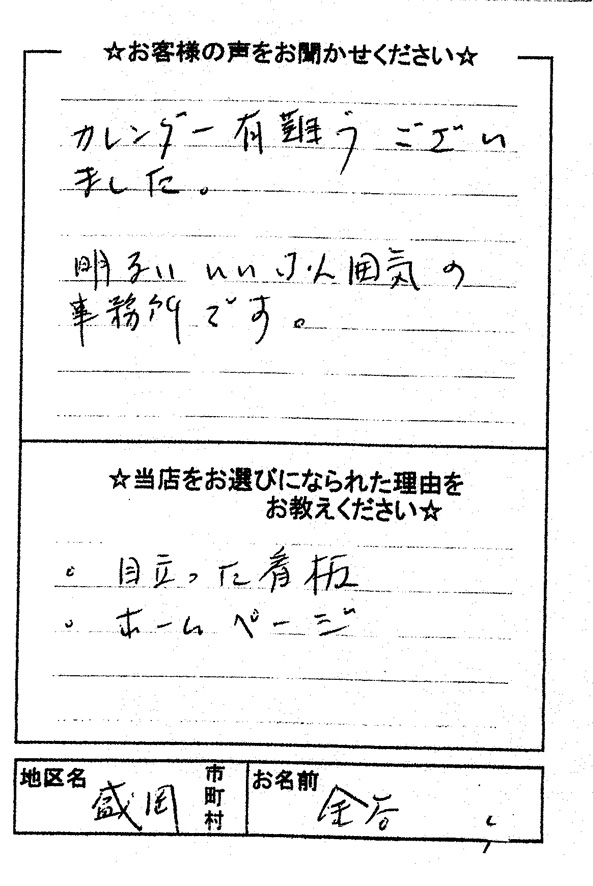 ☆お客様の声をお聞かせください☆
カレンダー有難うござい
ました。
明るいいいふん囲気の
事務所です。
☆当店をお選びになられた理由を
お教えください☆
。目立った看板
。ホームページ
地区名 盛岡 市町村 お名前